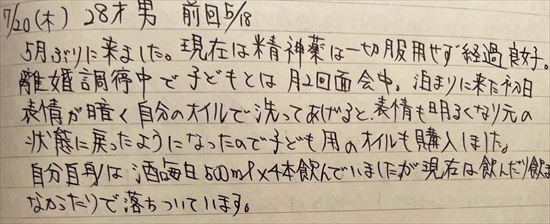 7/20(木) 28才 男 前回5/18
5月ぶりに来ました。現在は精神薬は一切服用せず経過良好。
離婚調停中で子どもとは月2回面会中。泊まりに来た初日
表情が暗く自分のオイルで洗ってあげると、表情も明るくなり元の
状態に戻ったようになったので子ども用のオイルも購入しました。
自分自身は酒毎日500ml×4本飲んでいましたが現在は飲んだり飲ま
なかったりで落ちついています。